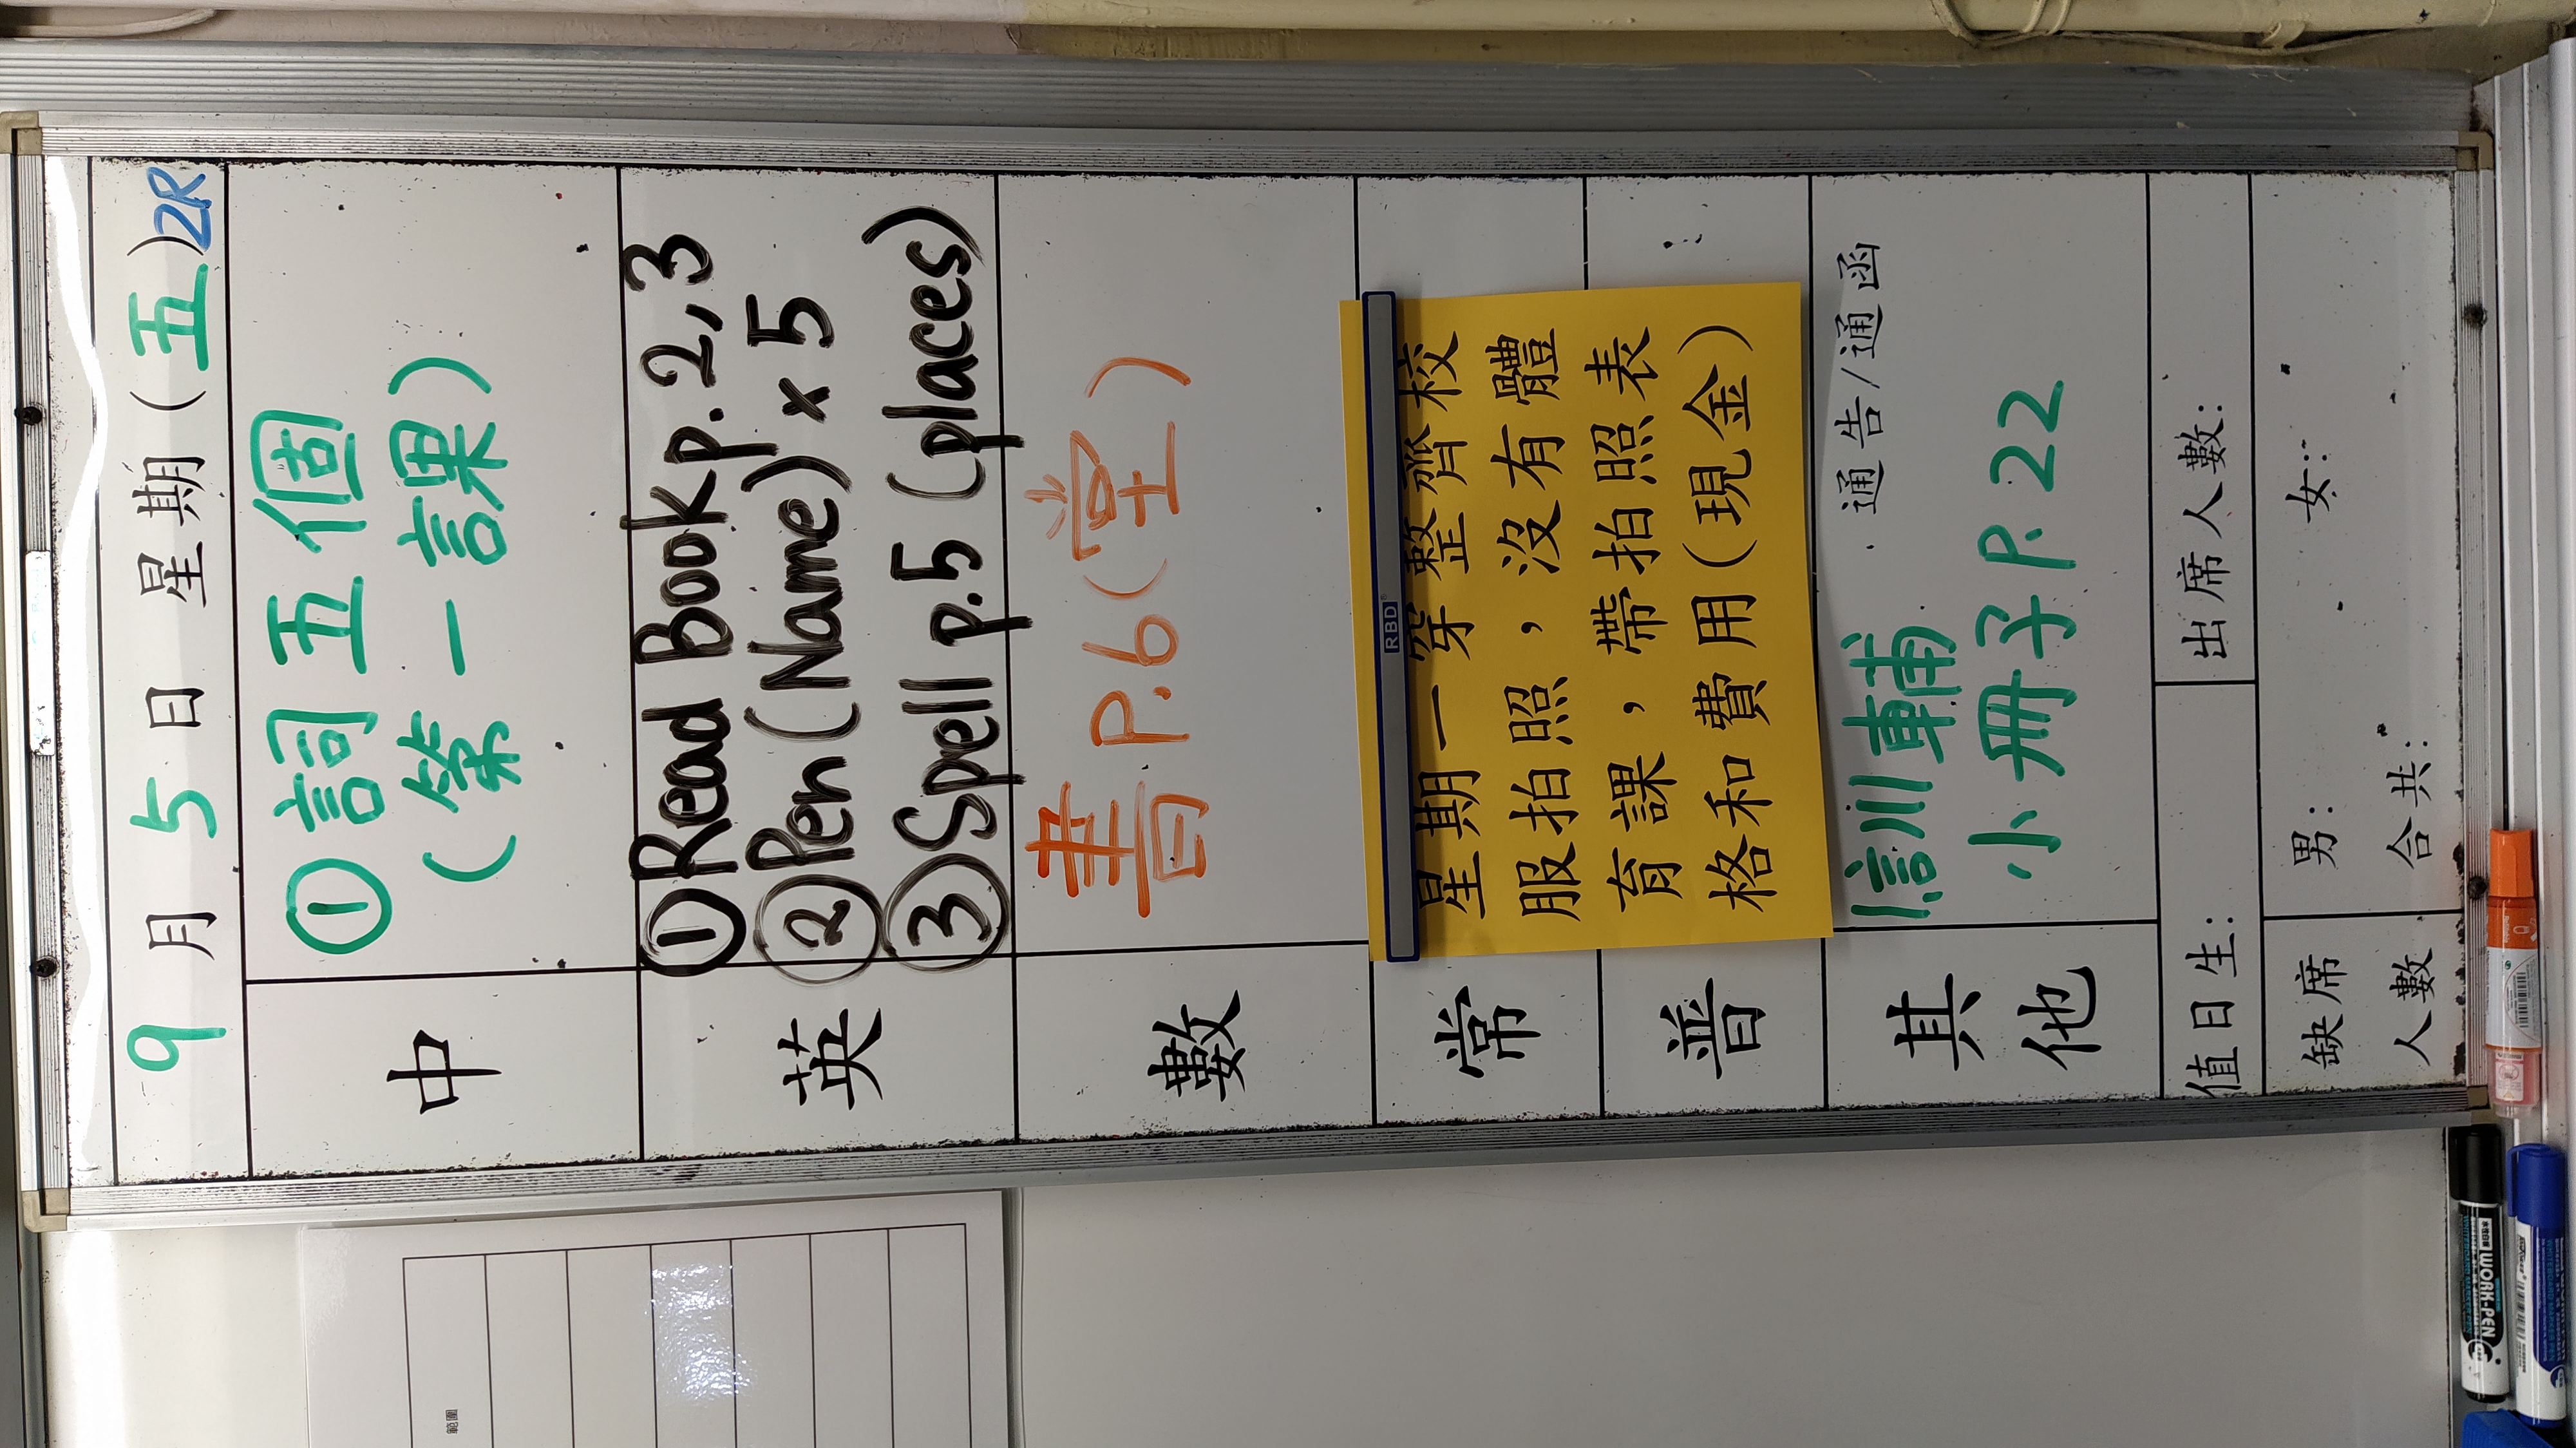 9月5日 星期(五)2R
中
①詞五個
(第一課)
英
①Read Book p.2,3
②Pen(Name)x5
③Spell p.5 (places)
數
書P.6(堂)
常
普
RBD
星期一穿整齊校
服拍照，沒有體
育課，帶拍照表
格和費用(現金)
其他
通告/通函
小冊子P.22
值日生:
出席人數:
缺席
人數
男:
女:
合共:
範圍
WORK-PEN